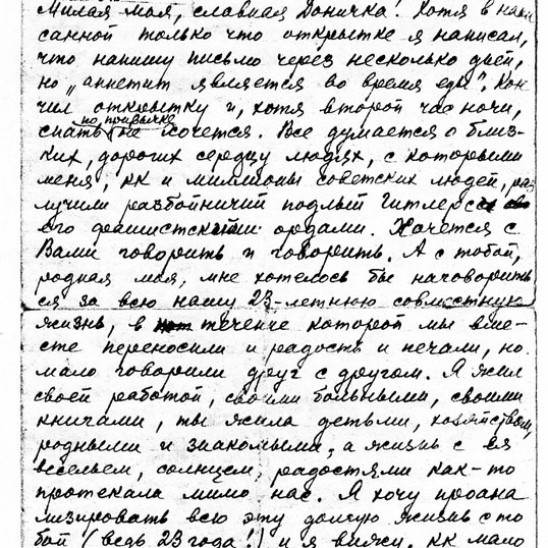 Милая моя, славная Доничка! Хотя в напи
санной только что открытке я написал,
что напишу письмо через несколько дней,
но „аппетит является во время еды". Кон
чил открытку и, хотя второй час ночи,
спать по привычке не хочется. Все думается о близ-
ких, дорогих сердцу людях, с которыми
меня, кк и миллионы советских людей, раз
лучили разбойничий подлый Гитлер с
его фашистскими ордами. Хочется с
Вами говорить и говорить. А с тобой,
родная моя, мне хотелось бы наговорить
ся за всю нашу 23-летнюю совместную
жизнь, в течение которой мы вме-
сте переносили и радость и печали, но
мало говорили друг с другом. Я жил
своей работой, своими больными, своими
книгами, ты жила детьми, хозяйством,
родными и знакомыми, а жизнь с ея
весельем, солнцем, радостями как-то
протекала мимо нас. Я хочу проана
лизировать всю эту долгую жизнь с то
бой (ведь 23 года!) и я вижу, кк мало